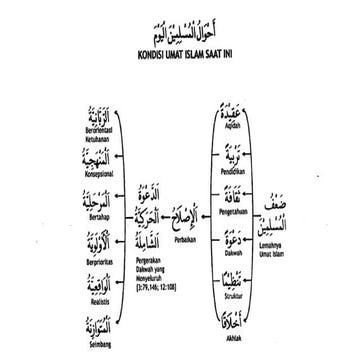 أَحْوَالُ الْمُسْلِمِيْنَ الْيَوْمَ
KONDISI UMAT ISLAM SAAT INI
ضَعْفُ
الْمُسْلِمِيْنَ
Lemahnya
Umat Islam
عَقِيْدَةٌ
Aqidah
تَرْبِيَةٌ
Pendidikan
ثَقَافَةٌ
Pengetahuan
دَعْوَةٌ
Dakwah
تَنْظِيْمًا
Struktur
أَخْلَاقًا
Akhlak
الْإِصْلَاحُ
Perbaikan
الدَّعْوَةُ
الْحَرَكِيَّةُ
الشَّامِلَةُ
Pergerakan
Dakwah yang
Menyeluruh
[3:79,146; 12:108]
الرَّبَّانِيَّةُ
Berorientasi
Ketuhanan
الْمَنْهَجِيَّةُ
Konsepsional
الْمَرْحَلِيَّةُ
Bertahap
الْأَوْلَوِيَّةُ
Berprioritas
الْوَاقِعِيَّةُ
Realistis
الْمُتَوَازِنَةُ
Seimbang